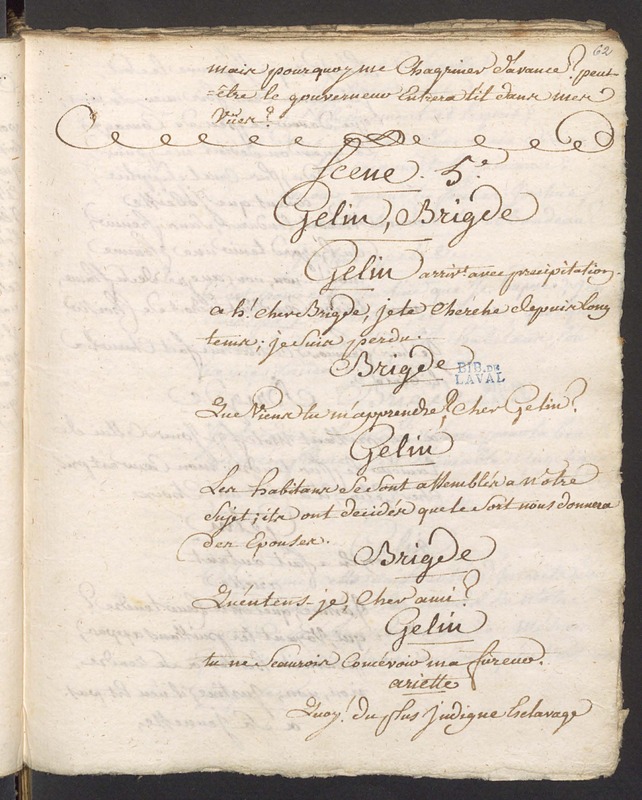 62
mais pourquoy me Chagriner d'avance? peut-
=être le gouverneur Entrera til dans mes
Vües?
Scene. 5.e
Gelin, Brigde
Gelin arrivt. avec precipitation.
a h! cher Brigde, je te Chérche depuis long
tems; je suis perdu.
Brigde
BIB. DE
LAVAL
Que Viens tu m'apprendre? Cher Gelin?
Gelin
Les habitans se sont assemblés a Nôtre
Sujet; ils ont décidés que le Sort nous donnera
des Epouses.
Brigde
Qu'éntens-je Cher ami?
Gelin
tu ne Seaurois Concévoir ma fureur.
ariette
Quoy! du plus indigne Esclavage